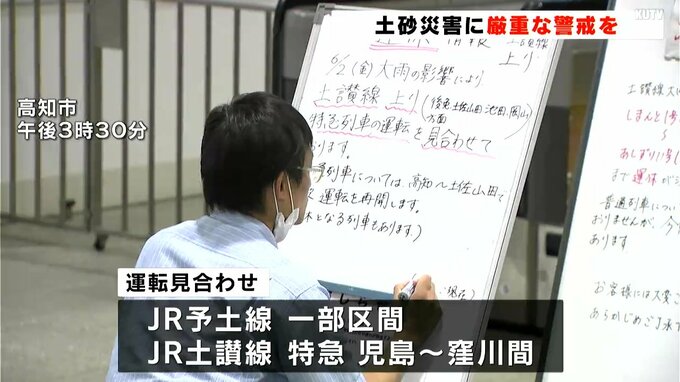 KUTV
土砂災害に厳重な警戒を
高知市
午後3時30分
情報 土讃線
上り
6/2(金)大雨の影響により
土讃線 上り(後免、土佐山田、池田、岡山方面)
特急列車の運転を見合わせて
おります。
列車については、高知〜土佐山田で
運転を再開します。
となる列車もあります)
土讃線大
しまんと1号
あしずり1号
まで運休が
普通列車につい
おりませんが、今
あります
お客様には大変ご
あらかじめご了承
運転見合わせ
JR予土線 一部区間
JR土讃線 特急 児島〜窪川間